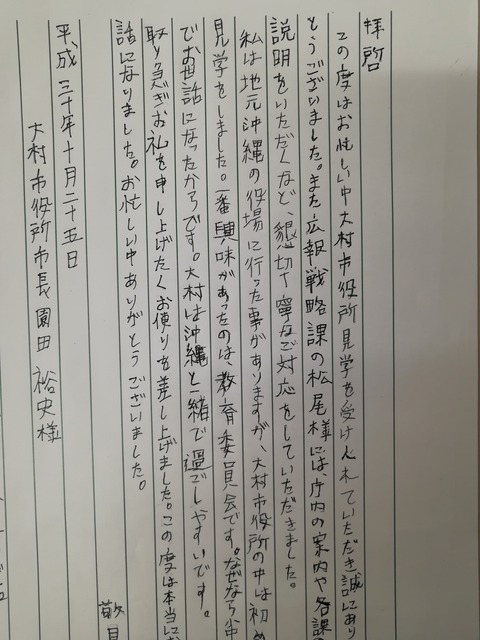 拝啓
この度はお忙しい中大村市役所見学を受け入れていただき誠にあり
とうございました。また広報戦略課の松尾様には、庁内の案内や各課の
説明をいただくなど、懇切丁寧なご対応をしていただきました。
私は地元沖縄の役場に行った事がありますが、大村市役所の中は初め
見学をしました。一番興味があったのは、教育委員会です。なぜなら
でお世話になったからです。大村は沖縄と一緒で過ごしやすいです。
取り急ぎお礼を申し上げたくお便りを差し上げました。この度は本当にお
話になりました。お忙しい中ありがとうございました。
敬具
平成三十年十月二十五日
大村市役所市長園田裕史様